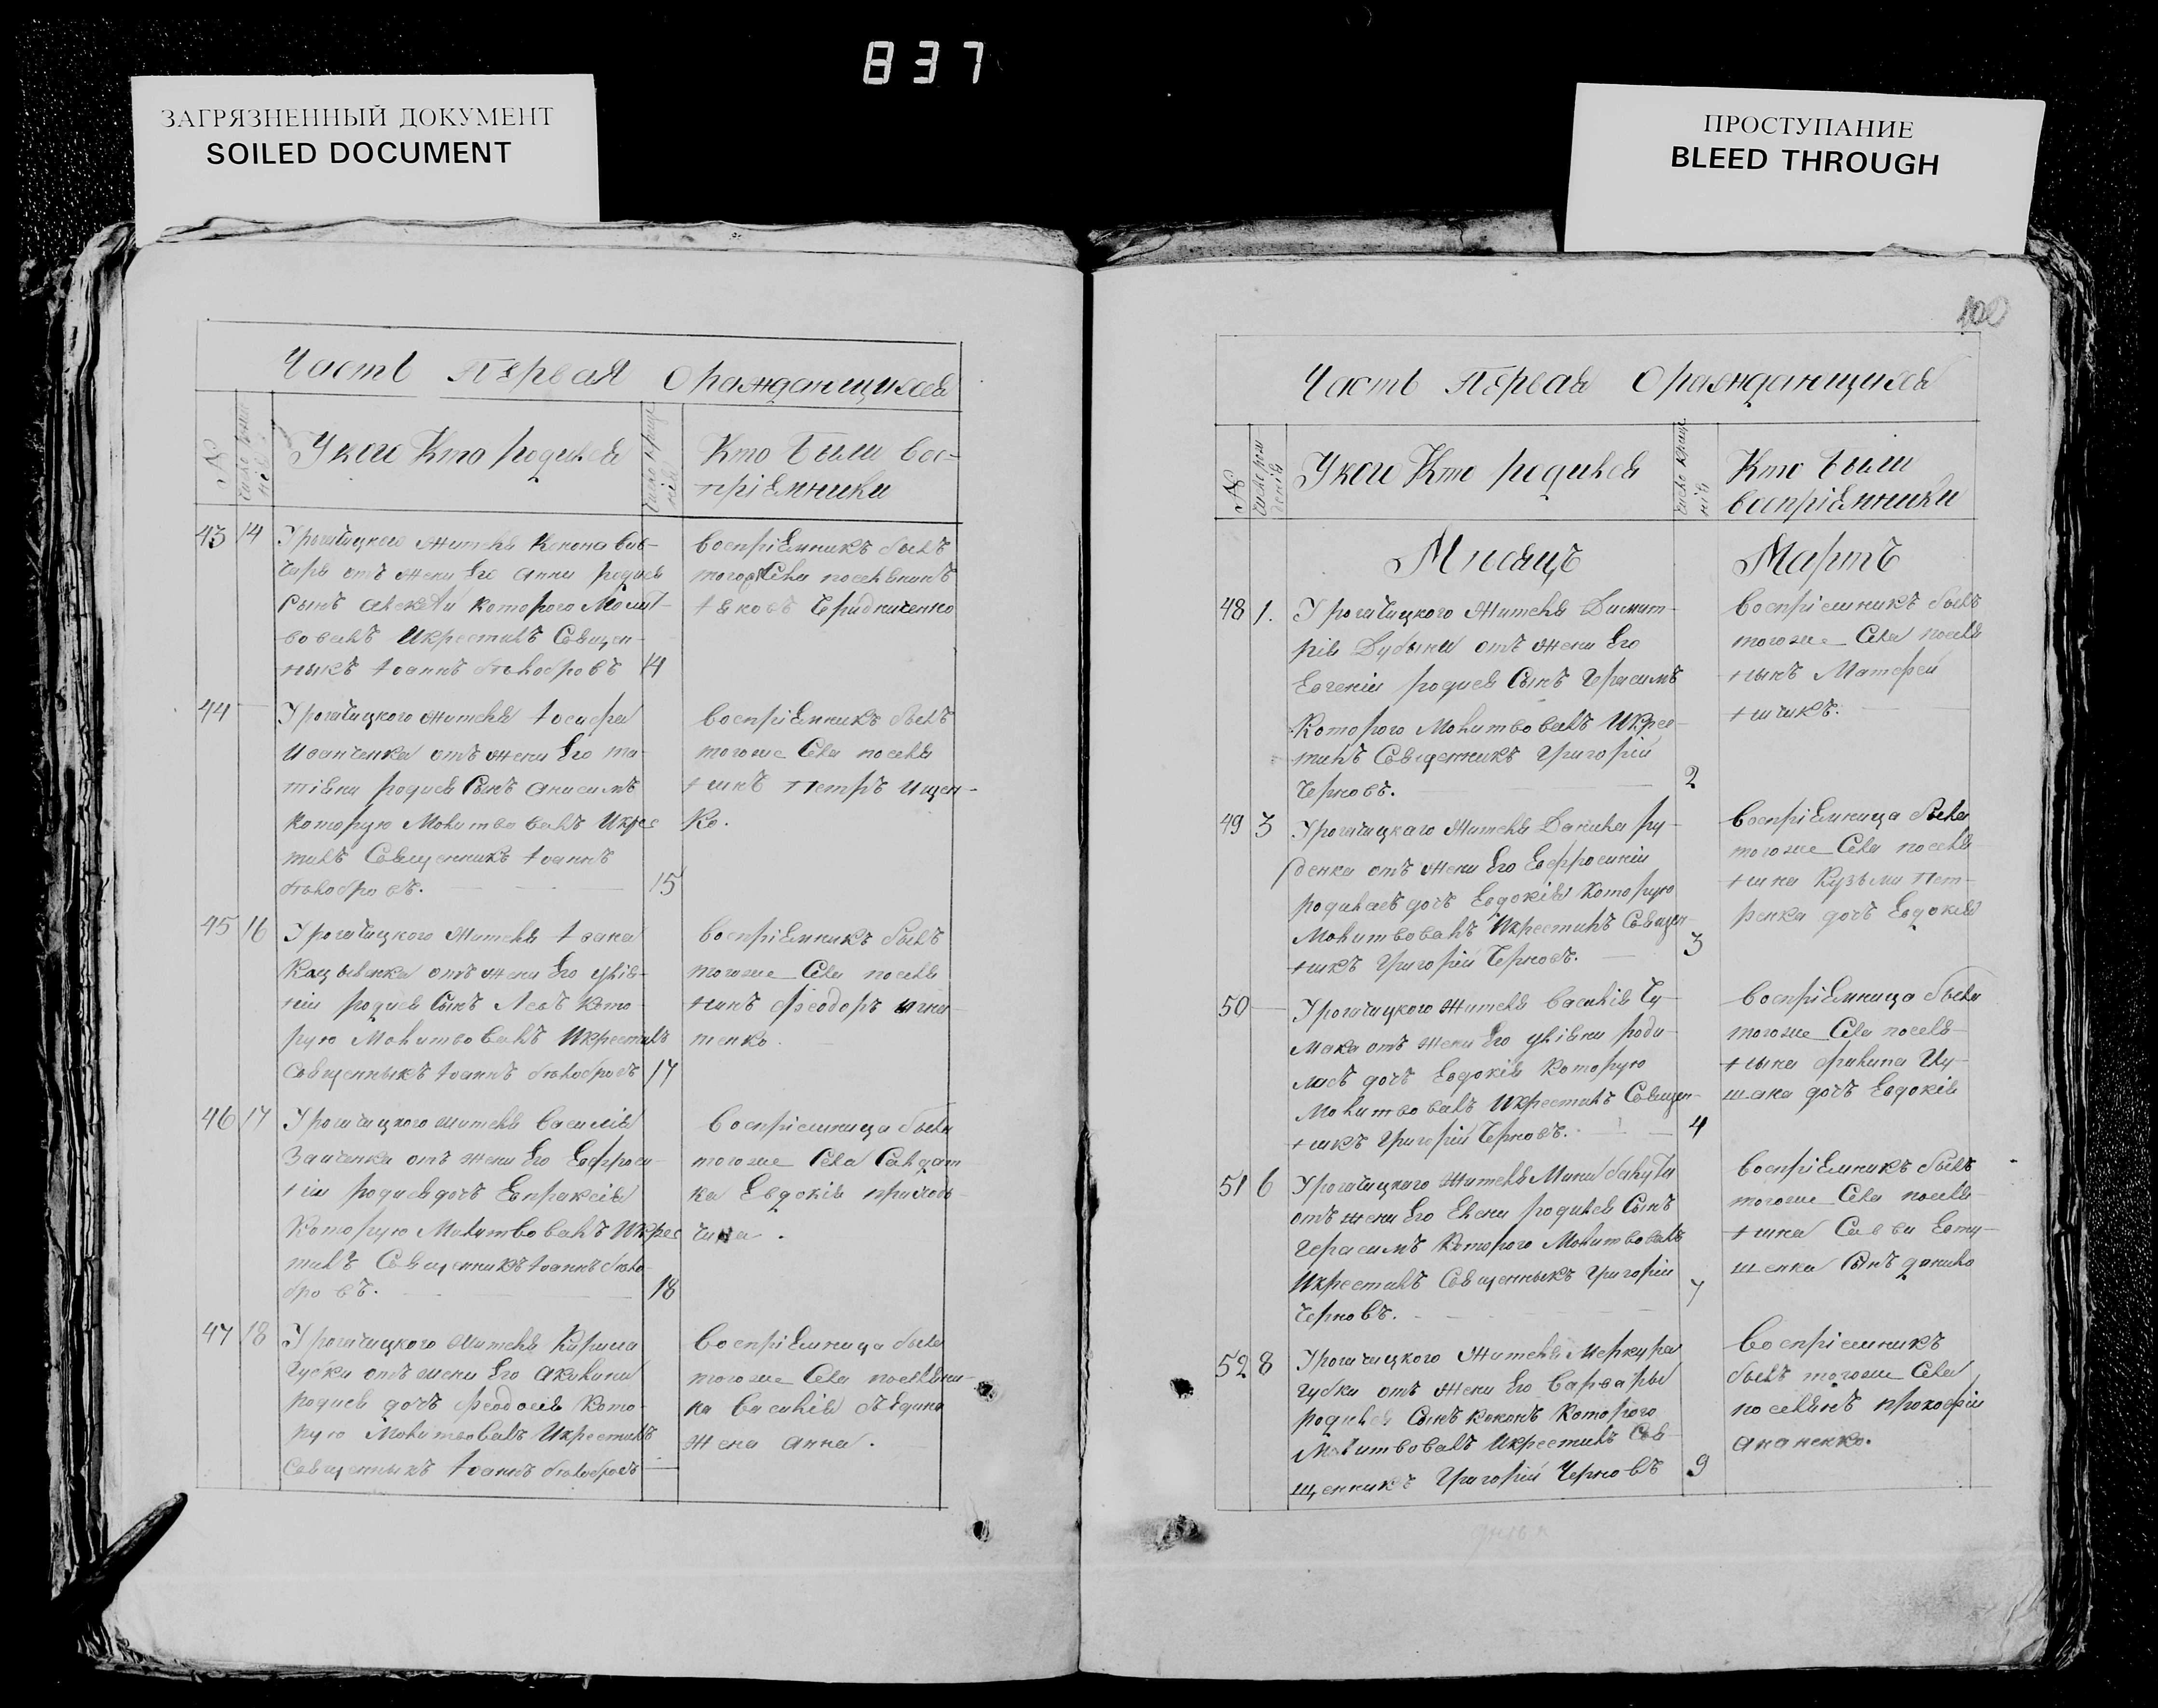 837
ЗАГРЯЗНЕННЫЙ ДОКУМЕНТ
SOILED DOCUMENT
ПРОСТУПАНИЕ
BLEED THROUGH
Часть Первая О раждающихся
№
число рож
У кого Кто родился
число креще
нія
Кто были вос-
пріЕмники
43 14
У рогачицкого жителя Конона
от жени Его Анни родися
Сынъ АлексѢй которого Молит-
вовалъ Икрестилъ Священ-
ныкъ Іоаннъ бѣлобровъ 14
воспріЕмникъ былъ
тогожъ Села поселянинъ
Яковъ Чередниченко
44
У рогачицкого жителя Іосифа
Иванченка отъ жени Его та-
тіяни родися Сынъ Анисимъ
которую Молитвовалъ Икрес
тилъ Священникъ Іоаннъ
бѣлобровъ. 15
воспріЕмникъ былъ
тогоже Села поселя
нинъ Петръ Ищен-
ко.
45 16
У рогачицкого жителя Івана
отъ жени Его улія-
ніи родися Сынъ Левъ Кото-
рую Молитвовалъ Икрестилъ
Священныкъ Іоаннъ бѣлобровъ 17
воспріЕмникъ былъ
тогоже Села поселя
нинъ Феодоръ
тенко
46 17
У рогачицкого жителя Василія
Заиченка отъ жени Его Ефроси-
ніи родися дочъ Евпраксія
Которую Молитвовалъ Икрес
тилъ Священникъ Іоаннъ бѣло-
бровъ. 18
воспріемница была
тогоже Села Салдат
ка Евдокія
чина.
47 18
У рогачицкого жителя Кирила
Губки отъ жени Его Акилини
родися дочъ Феодосія Кото-
рую Молитвовалъ Икрестилъ
Священныкъ Іоаннъ бѣлобровъ
воспріЕмница была
тогоже Села поселяни-
на Василія
жена Анна.
100
Часть Первая О раждающихся
№
число рож
денія
У кого Кто родился
число креще
нія
Кто были
воспріЕмники
Мѣсяцъ Мартъ
48 1.
У рогачицкого жителя Димит-
рія Дубыни отъ жени Его
Евгеніи родися Сынъ Герасимъ
Которого Молитвовалъ Икрес-
тилъ Священникъ Григорій
Черновъ. 2
воспріемникъ былъ
тогоже Села поселя
нынъ Матфей
49 3
У рогачицкаго жителя Данила ру-
денка отъ жени Его Ефросиніи
родиласъ дочъ Евдокія Которую
Молитвовалъ Икрестилъ Священ-
никъ Григорій Черновъ. 3
воспріЕмница была
тогоже Села поселя-
нина Кузьми Пет-
ренка дочъ Евдокія
50
У рогачицкого жителя Василія Чу-
мака отъ жени Его уліяни роди-
ласъ дочъ Евдокія Которую
Молитвовалъ Икрестилъ Священ-
никъ Григорій Черновъ. 4
воспріЕмница была
тогоже Села поселя-
нына Филипа Чу-
мака дочъ Евдокія
51 6
У рогачицкаго жителя Мини
отъ жени Его Елени родился Сынъ
Герасимъ Которого Молитвовалъ
Икрестилъ Священныкъ Григорій
Черновъ. 7
воспріЕмникъ былъ
тогоже Села поселя-
нина Савви Евту-
шенка Сынъ данило
52 8
У рогачицкого жителя Меркурія
Губки отъ жени Его Варвары
родился Сынъ Кононъ Которого
Молитвовалъ Икрестилъ Свя-
щенникъ Григорій Черновъ 9
воспріемникъ
былъ тогоже Села
поселянъ прокофій
Ананенко.